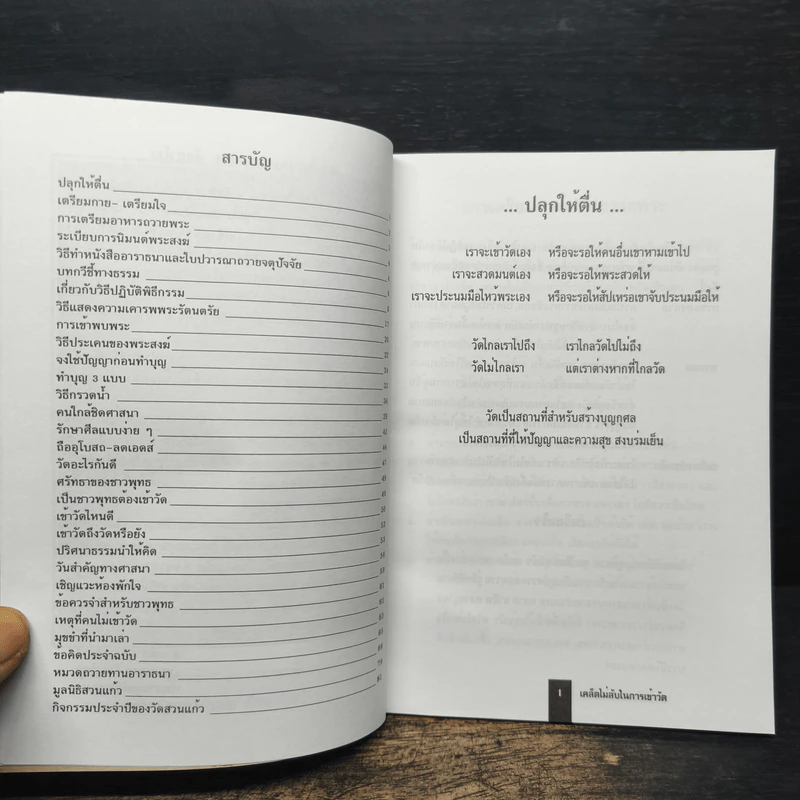 สารบัญ
ปลุกให้ตื่น
เตรียมกาย- เตรียมใจ
การเตรียมอาหารถวายพระ
ระเบียบการนิมนต์พระสงฆ์
วิธีทำหนังสืออาราธนาและใบปวารณาถวายจตุปัจจัย
บทกวีชี้ทางธรรม
เกี่ยวกับวิธีปฏิบัติพิธีกรรม
วิธีแสดงความเคารพพระรัตนตรัย
การเข้าพบพระ
วิธีประเคนของพระสงฆ์
จงใช้ปัญญาก่อนทำบุญ
ทำบุญ 3 แบบ
วิธีกรวดน้ำ
คนใกล้ชิดศาสนา
รักษาศีลแบบง่าย ๆ
ถืออุโบสถ-ลดเอดส์
วัดอะไรกันดี
ศรัทธาของชาวพุทธ
เป็นชาวพุทธต้องเข้าวัด
เข้าวัดไหนดี
เข้าวัดถึงวัดหรือยัง
ปริศนาธรรมนำให้คิด
วันสำคัญทางศาสนา
เชิญแวะห้องพักใจ
ข้อควรจำสำหรับชาวพุทธ
เหตุที่คนไม่เข้าวัด
มุขขำที่นำมาเล่า
ข้อคิดประจำฉบับ
หมวดถวายทานอาราธนา
มูลนิธิสวนแก้ว
กิจกรรมประจำปีของวัดสวนแก้ว
... ปลุกให้ตื่น ...
เราจะเข้าวัดเอง หรือจะรอให้คนอื่นเขาหามเข้าไป
เราจะสวดมนต์เอง หรือจะรอให้พระสวดให้
เราจะประนมมือไหว้พระเอง หรือจะรอให้สัปเหร่อเขาจับประนมมือให้
วัดไกลเราไปถึง เราไกลวัดไปไม่ถึง
วัดไม่ไกลเรา แต่เราต่างหากที่ไกลวัด
วัดเป็นสถานที่สำหรับสร้างบุญกุศล
เป็นสถานที่ที่ให้ปัญญาและความสุข สงบร่มเย็น
1 เคล็ดไม่ลับในการเข้าวัด